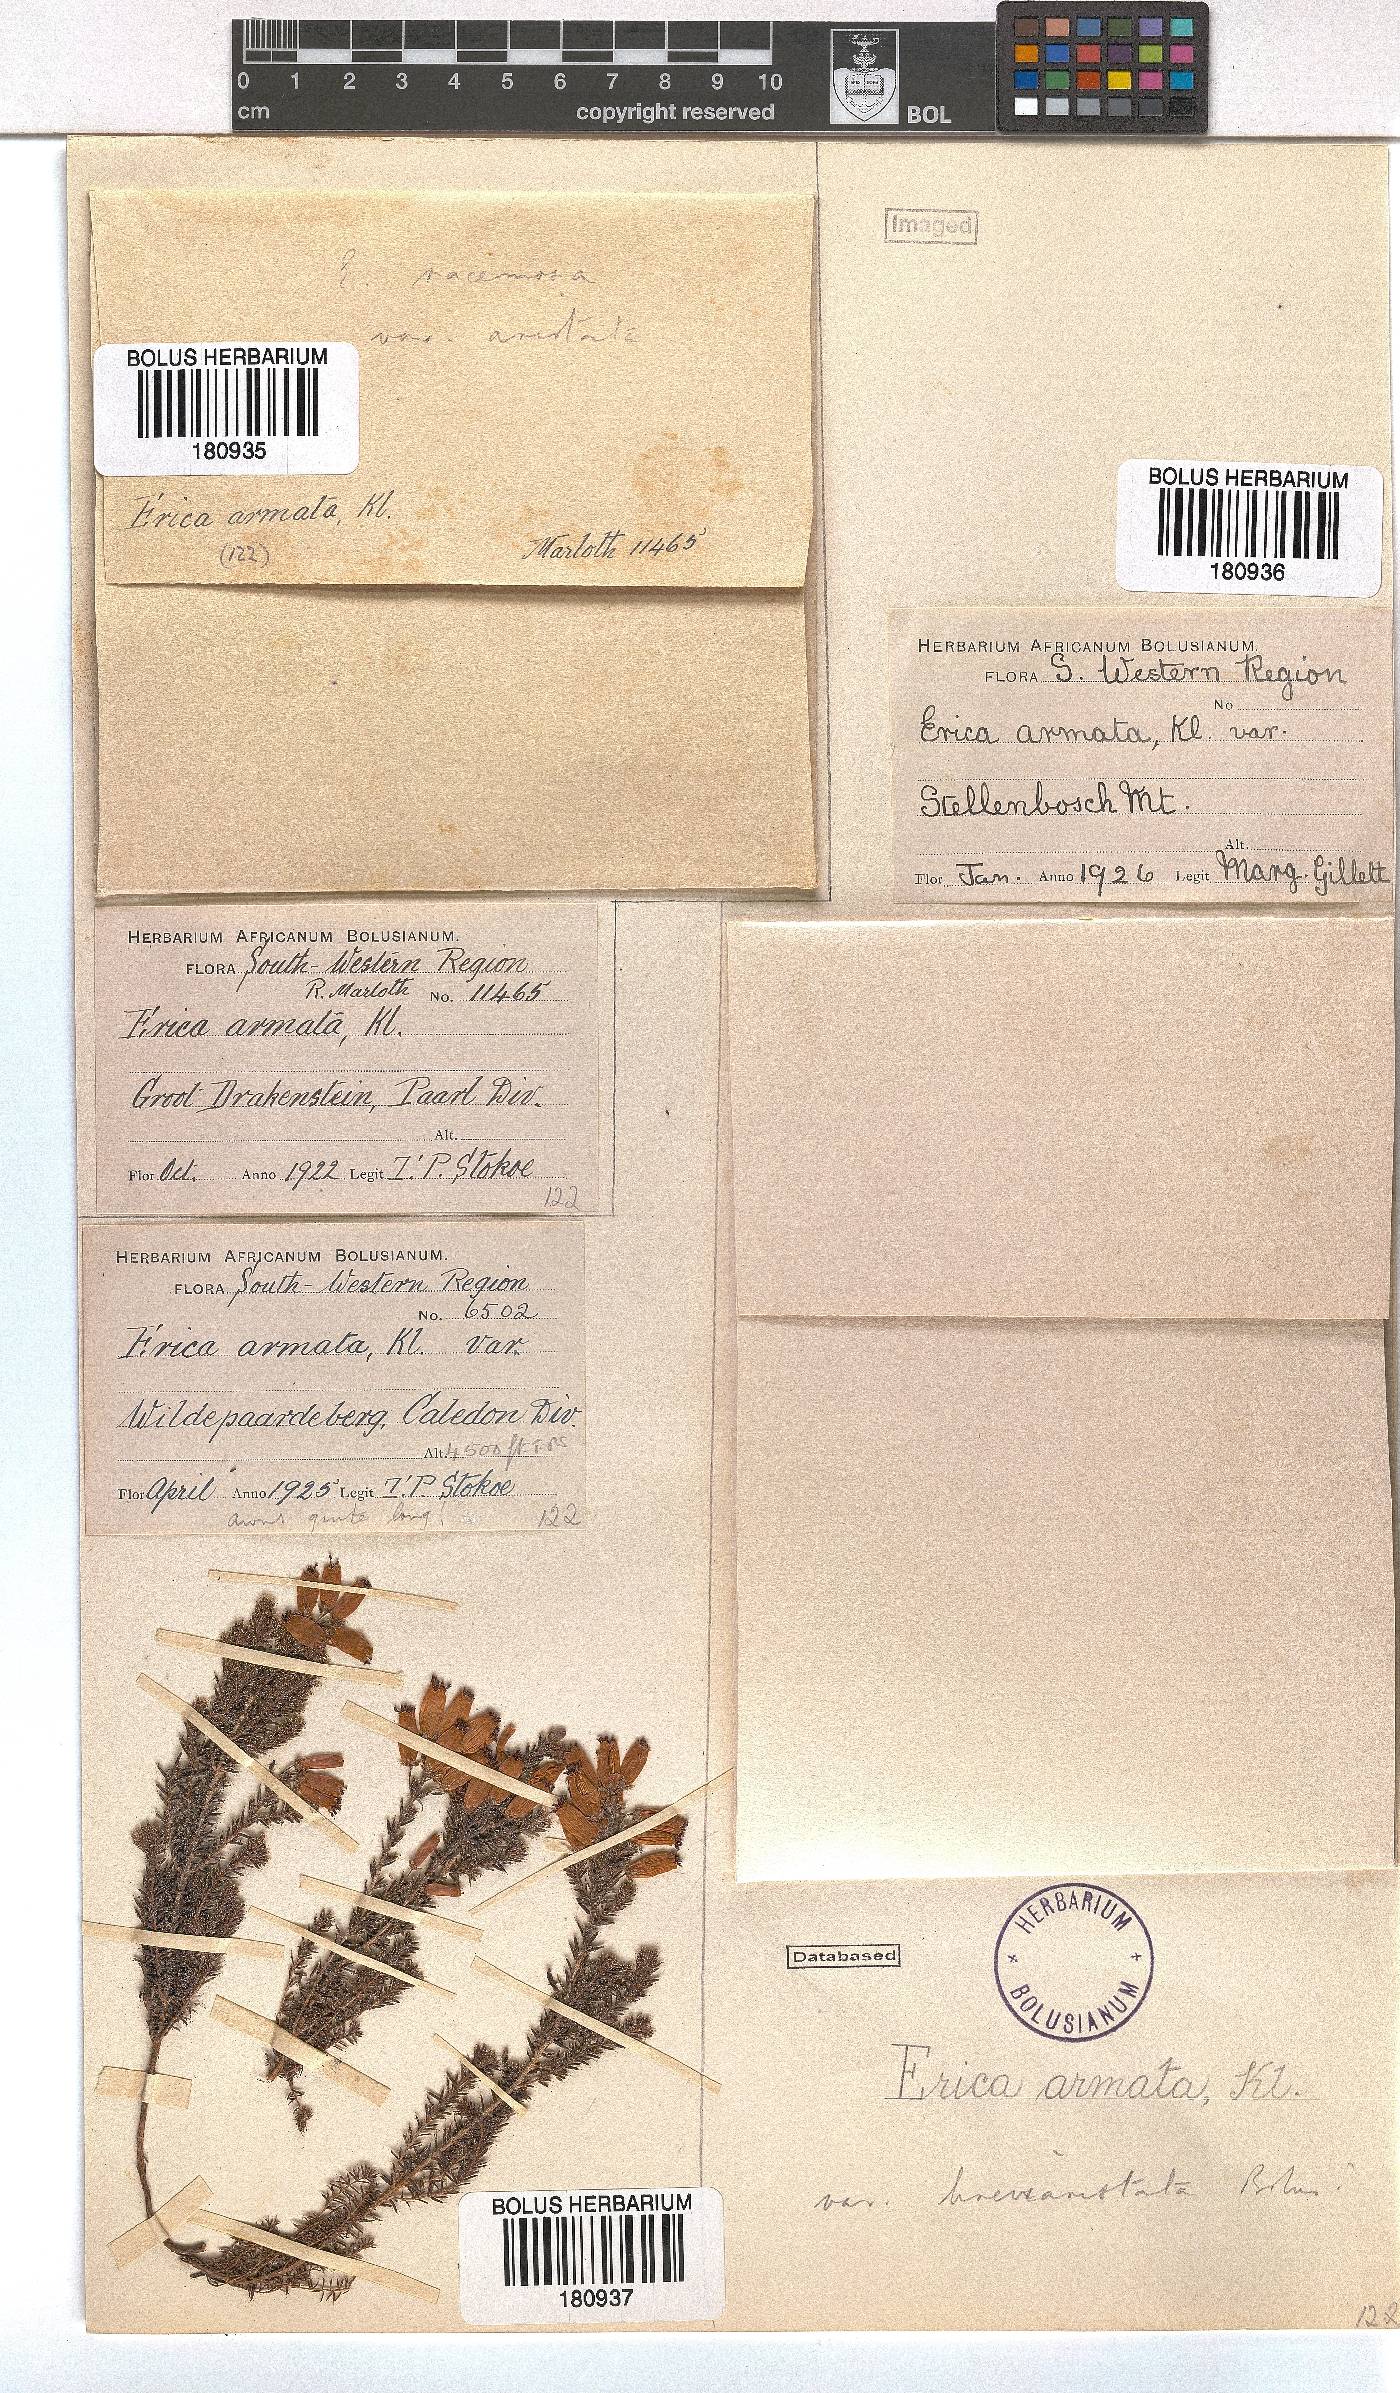 0 1 2 3 4 5 6 7 8 9 10
cm
copyright reserved
BOL
Imaged
E. racemosa
var. aristata
BOLUS HERBARIUM
180935
Erica armata, Kl.
(122)
Marloth 11465
BOLUS HERBARIUM
180936
HERBARIUM AFRICANUM BOLUSIANUM.
FLORA S. Western Region
No
Erica armata, Kl. var.
Stellenbosch Mt.
Alt.
Flor Jan. Anno 1926 Legit Marg. Gillett
HERBARIUM AFRICANUM BOLUSIANUM.
FLORA South-Western Region
R. Marloth No. 11465
Erica armata, Kl.
Groot Drakenstein, Paarl Div.
Alt.
Flor Oct. Anno 1922 Legit T.P. Stokoe
122
HERBARIUM AFRICANUM BOLUSIANUM.
FLORA South-Western Region
No. 6502
Erica armata, Kl. var.
Wildepaardeberg, Caledon Div.
Alt. 4500 ft
Flor April Anno 1925 Legit T.P. Stokoe
awns quite long.
122
Databased
HERBARIUM
BOLUSIANUM
Erica armata, Kl.
var. breviaristata Bolus
BOLUS HERBARIUM
180937
122